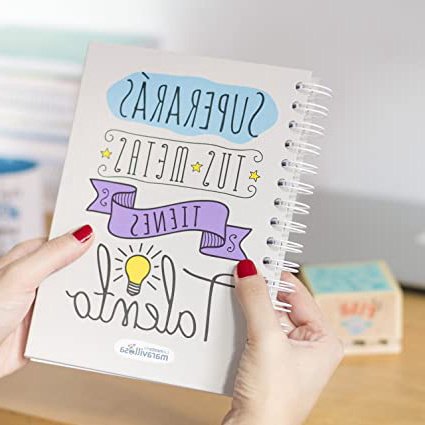 SUPERARÁS
TUS METAS
TIENES
Talento
maravillosa